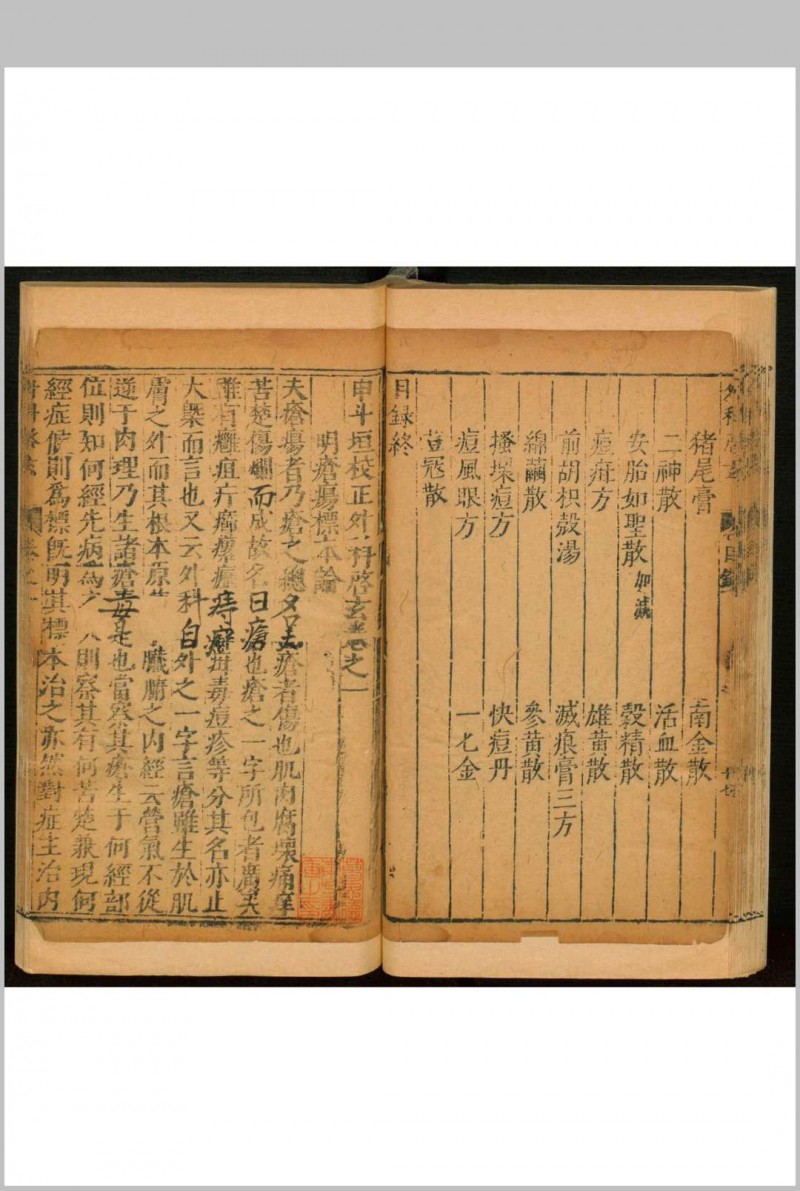 猪尾膏　南金散
二神散　活血散
安胎如聖散加減　穀精散
痘疳方　雄黄散
前胡枳殼湯　滅痕膏三方
綿繭散　參黄散
搔壞痘方　快痘丹
痘風眼方　一七金
荳蔻散
目録終
申斗垣校正外科啓玄卷之一
明瘡瘍標本論
夫瘡瘍者乃瘡之總名主瘡者傷也肌肉腐壞痛痒
苦楚傷爛而成故名曰瘡也瘡之一字所包者廣矣
雖有癰疽疔癤瘰癧痔癬疳毒痘疹等分其名亦止
大槩而言也又云外科自外之一字言瘡雖生於肌
膚之外而其根本原 臟腑之内經云營氣不從
逆于肉理乃生諸瘡毒是也當察其瘡生于何經部
位則知何經先病為 則察其有何苦楚兼現何
經症候則爲標既明其標本治之亦然對症主治内